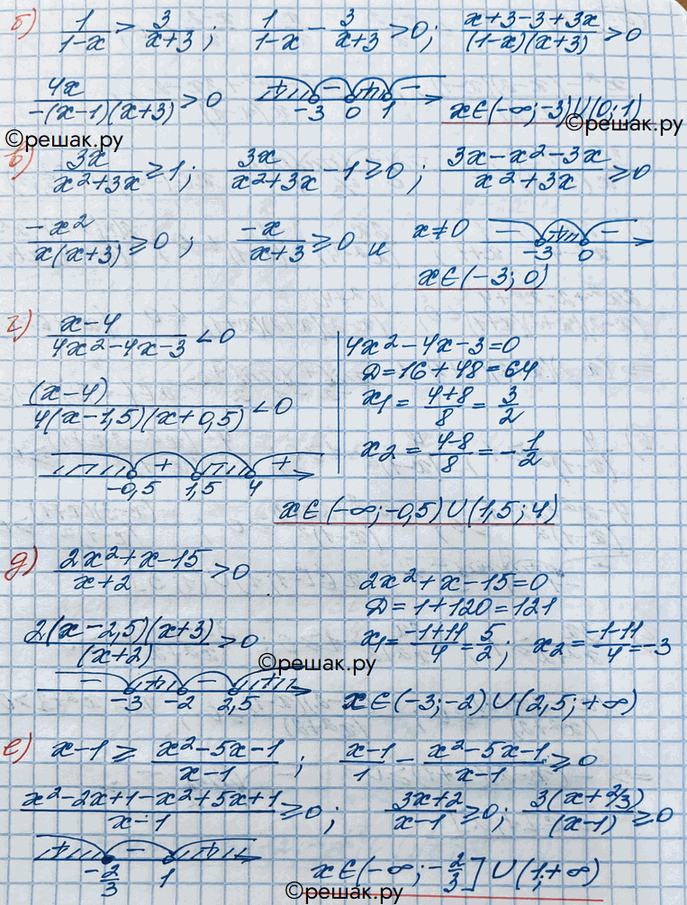 б) 1/(1-x) > 3/(x+3) ; 1/(1-x) - 3/(x+3) > 0; (x+3-3+3x)/((1-x)(x+3)) > 0
4x/(-(x-1)(x+3)) > 0 + - + - -3 0 1 x∈(-∞;-3)∪(0;1)
©решак.ру ©решак.ру
в) 3x/(x²+3x) ≥ 1; 3x/(x²+3x) - 1 ≥ 0; (3x-x²-3x)/(x²+3x) ≥ 0
-x²/(x(x+3)) ≥ 0 ; -x/(x+3) ≥ 0 и x≠0 - + - -3 0
x∈(-3; 0)
г) (x-4)/(4x²-4x-3) < 0 4x²-4x-3=0
Д=16+48=64
(x-4)/(4(x-1,5)(x+0,5)) < 0 x₁ = (4+8)/8 = 3/2
x₂ = (4-8)/8 = -1/2
- + - + -0,5 1,5 4
x∈(-∞;-0,5)∪(1,5;4)
д) (2x²+x-15)/(x+2) > 0 2x²+x-15=0
Д=1+120=121
2(x-2,5)(x+3)/(x+2) > 0 x₁=(-1+11)/4=5/2; x₂=(-1-11)/4=-3
©решак.ру
- + - + -3 -2 2,5 x∈(-3;-2)∪(2,5;+∞)
е) x-1 ≥ (x²-5x-1)/(x-1) ; (x-1)/1 - (x²-5x-1)/(x-1) ≥ 0
(x²-2x+1-x²+5x+1)/(x-1) ≥ 0; (3x+2)/(x-1) ≥ 0; 3(x+2/3)/(x-1) ≥ 0
+ - + -2/3 1 x∈(-∞;-2/3]∪(1;+∞)
©решак.ру